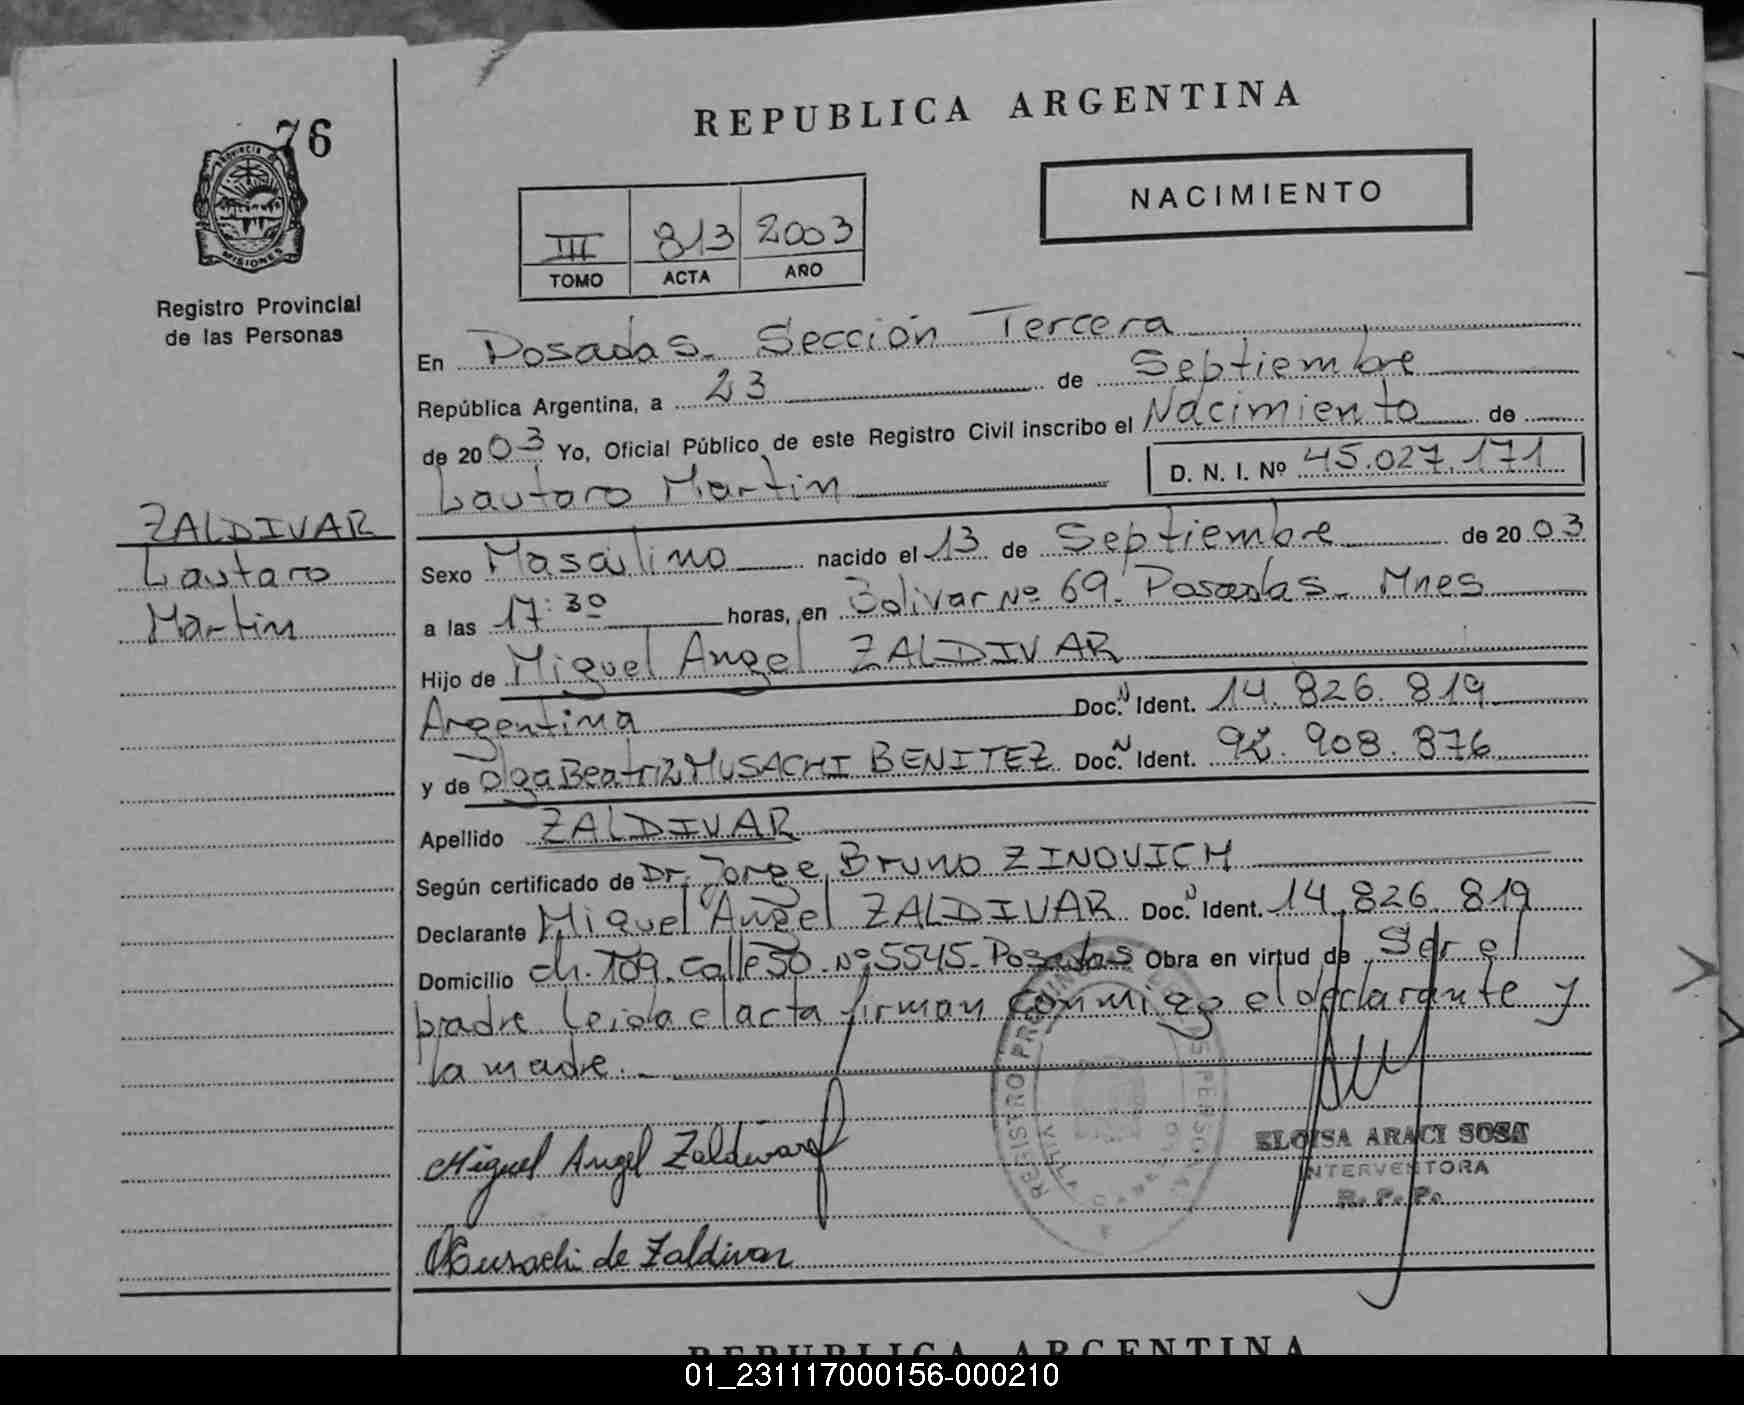 REPUBLICA ARGENTINA
76
PROVINCIA DE
MISIONES
Registro Provincial
de las Personas
NACIMIENTO
III 813 2003
TOMO ACTA AÑO
En Posadas. Sección Tercera
República Argentina, a 23 de Septiembre
de 2003 Yo, Oficial Público de este Registro Civil inscribo el Nacimiento de
Lautaro Martin D. N. I. Nº 45.027.171
ZALDIVAR
Lautaro
Martin
Sexo Masculino nacido el 13 de Septiembre de 2003
a las 17:30 horas, en Bolivar Nº 69. Posadas. Mnes
Hijo de Miguel Angel ZALDIVAR
Argentina Doc. N Ident. 14.826.819
y de Olga Beatriz MUSACHI BENITEZ Doc. N Ident. 92.908.876
Apellido ZALDIVAR
Según certificado de Dr. Jorge Bruno ZINOVICH
Declarante Miguel Angel ZALDIVAR Doc. Ident. 14.826.819
Domicilio ch. 109. calle 50. Nº 5545. Posadas Obra en virtud de Ser el
padre. Leida el acta firman conmigo el declarante y
la madre.
Miguel Angel Zaldivar
ELOISA ARACI SOSA
INTERVENTORA
R. P. P.
Musachi de Zaldivar
REPUBLICA ARGENTINA
01_231117000156-000210